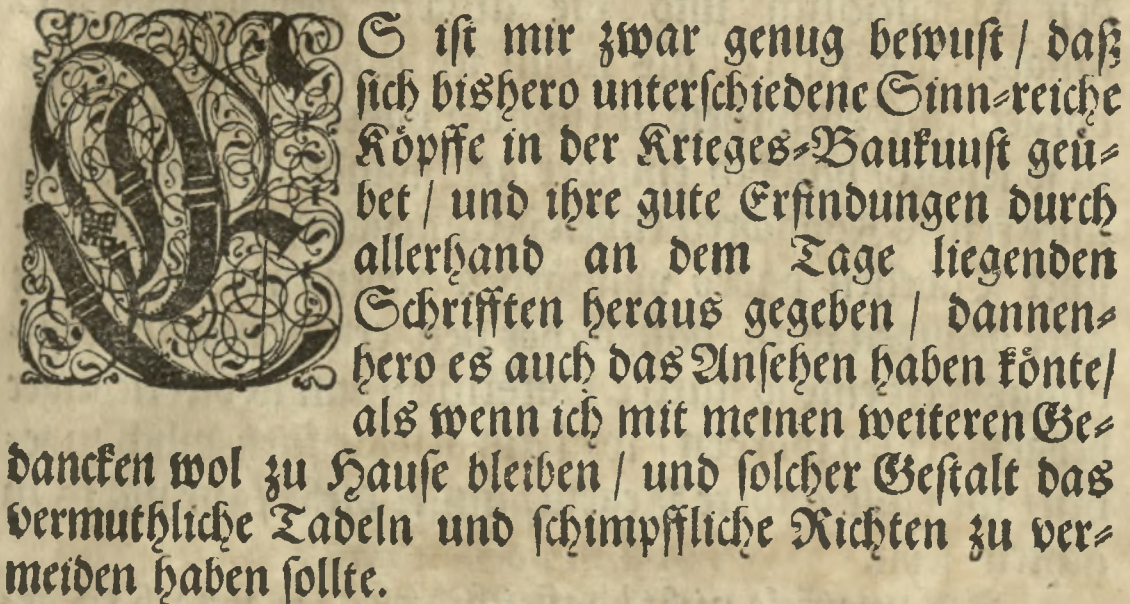 ES ist mir zwar genug bewust / daß
sich bishero unterschiedene Sinn-reiche
Köpffe in der Krieges-Baukuust geü-
bet / und ihre gute Erfindungen durch
allerhand an dem Tage liegenden
Schrifften heraus gegeben / dannen-
hero es auch das Ansehen haben könte/
als wenn ich mit meinen weiteren Ge-
dancken wol zu Hause bleiben / und solcher Gestalt das
vermuthliche Tadeln und schimpffliche Richten zu ver-
meiden haben sollte.